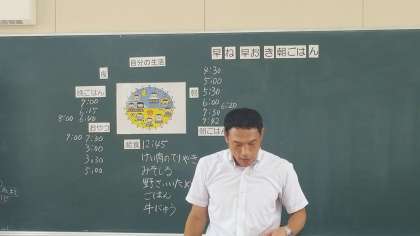 早ね早おき朝ごはん
自分の生活
夜
晩ごはん
7:00
6:15
8:00 6:40
おやつ
7:00 7:30
3:00
3:30
5:00
朝
4:30
5:00
5:30
6:00 6:20
7:30
7:42
朝ごはん
給食 12:45
けい肉のてりやき
みそしる
野さいいため
ごはん
牛にゅう